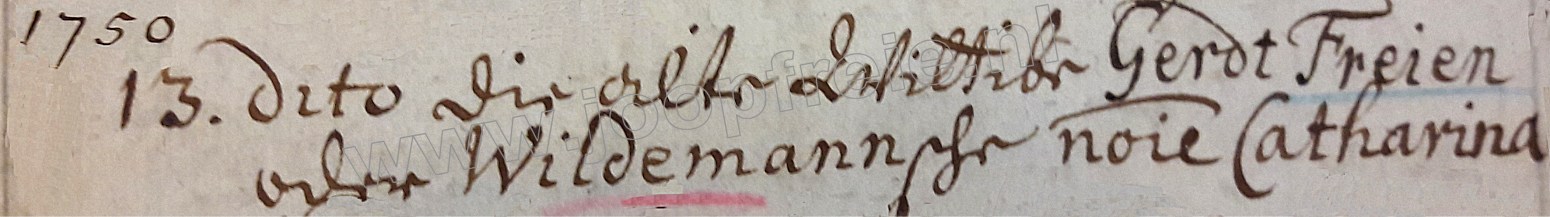 1750
13. dito die alte Wittibe Gerdt Freien
oder Wildemannsche noie Catharina
www.joopfreije.nl